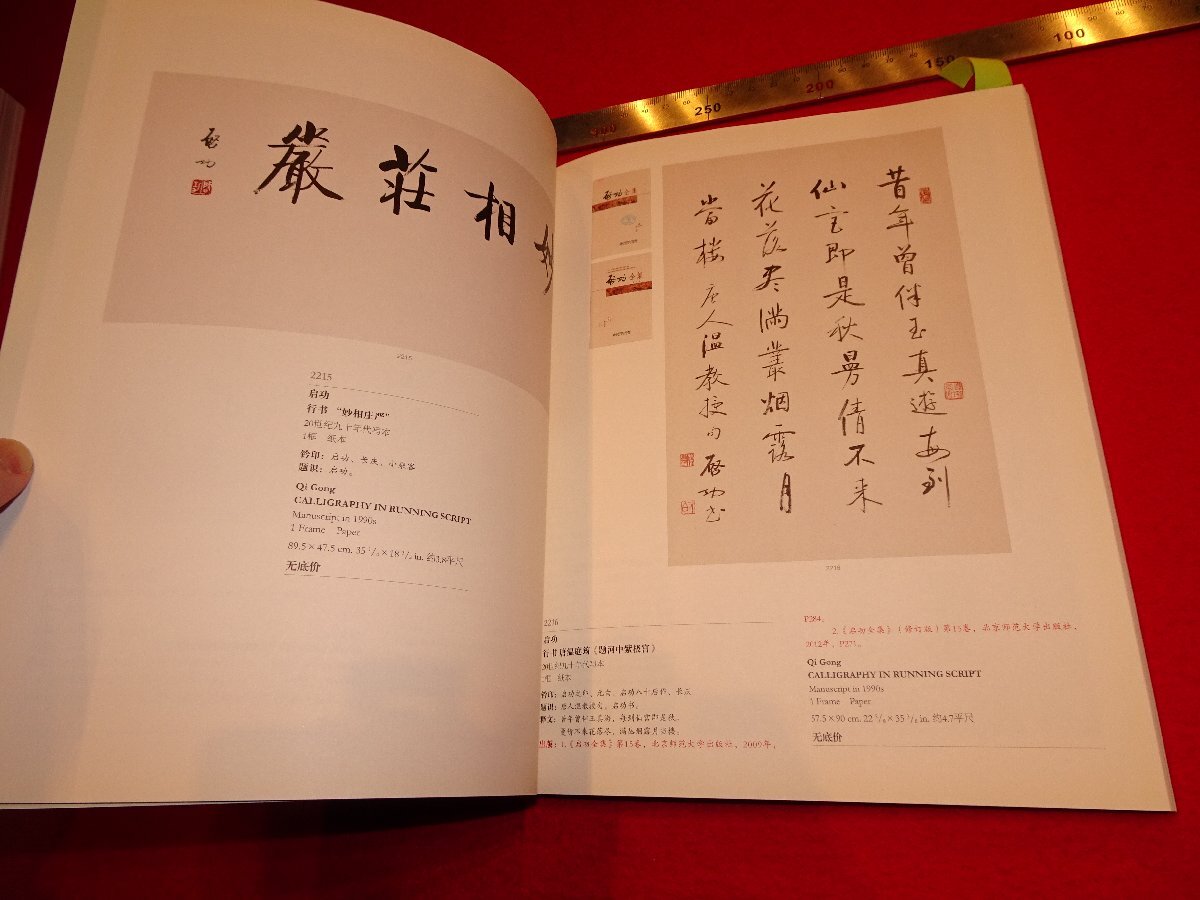 嚴 莊 相 妙
啓功
2215
2215
启功
行书 “妙相庄严”
20世纪九十年代写本
1框 纸本
钤印：启功、长庆、小乘客
题识：启功。
Qi Gong
CALLIGRAPHY IN RUNNING SCRIPT
Manuscript in 1990s
1 Frame Paper
89.5×47.5 cm. 35 1/4×18 3/4 in. 约3.8平尺
无底价
启功全集
启功全集
昔年曾伴玉真遊每到
仙宮即是秋曼倩不来
花落尽满叢烟露月
當樓 唐人温教授句 啓功书
2216
2216
启功
行书唐温庭筠《题河中紫极宫》
20世纪九十年代写本
1框 纸本
钤印：启功之印、元白、启功八十后作、长庆
题识：唐人温教授句，启功书。
释文：昔年曾伴玉真游，每到仙宫即是秋。
曼倩不来花落尽，满丛烟露月当楼。
出版：1.《启功全集》第15卷，北京师范大学出版社，2009年，
P284。
2.《启功全集》（修订版）第15卷，北京师范大学出版社，
2012年，P271。
Qi Gong
CALLIGRAPHY IN RUNNING SCRIPT
Manuscript in 1990s
1 Frame Paper
57.5×90 cm. 22 5/8×35 3/8 in. 约4.7平尺
无底价
300 250 200 150 100